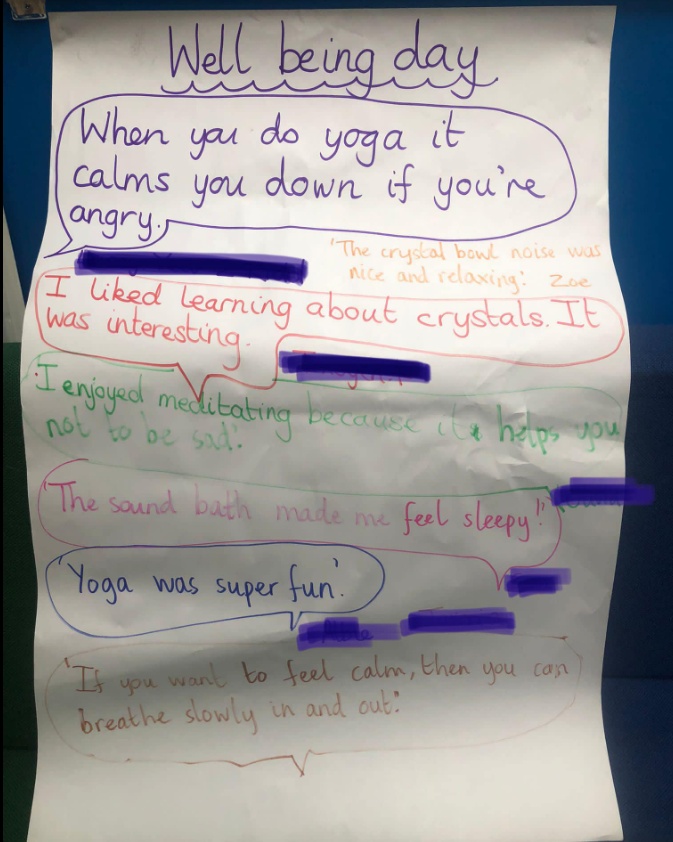 Well being day
When you do yoga it
calms you down if you're
angry.
'The crystal bowl noise was
nice and relaxing.' Zoe
I liked learning about crystals. It
was interesting.
'I enjoyed meditating because it helps you
not to be sad.'
'The sound bath made me feel sleepy!'
'Yoga was super fun.'
'If you want to feel calm, then you can
breathe slowly in and out.'